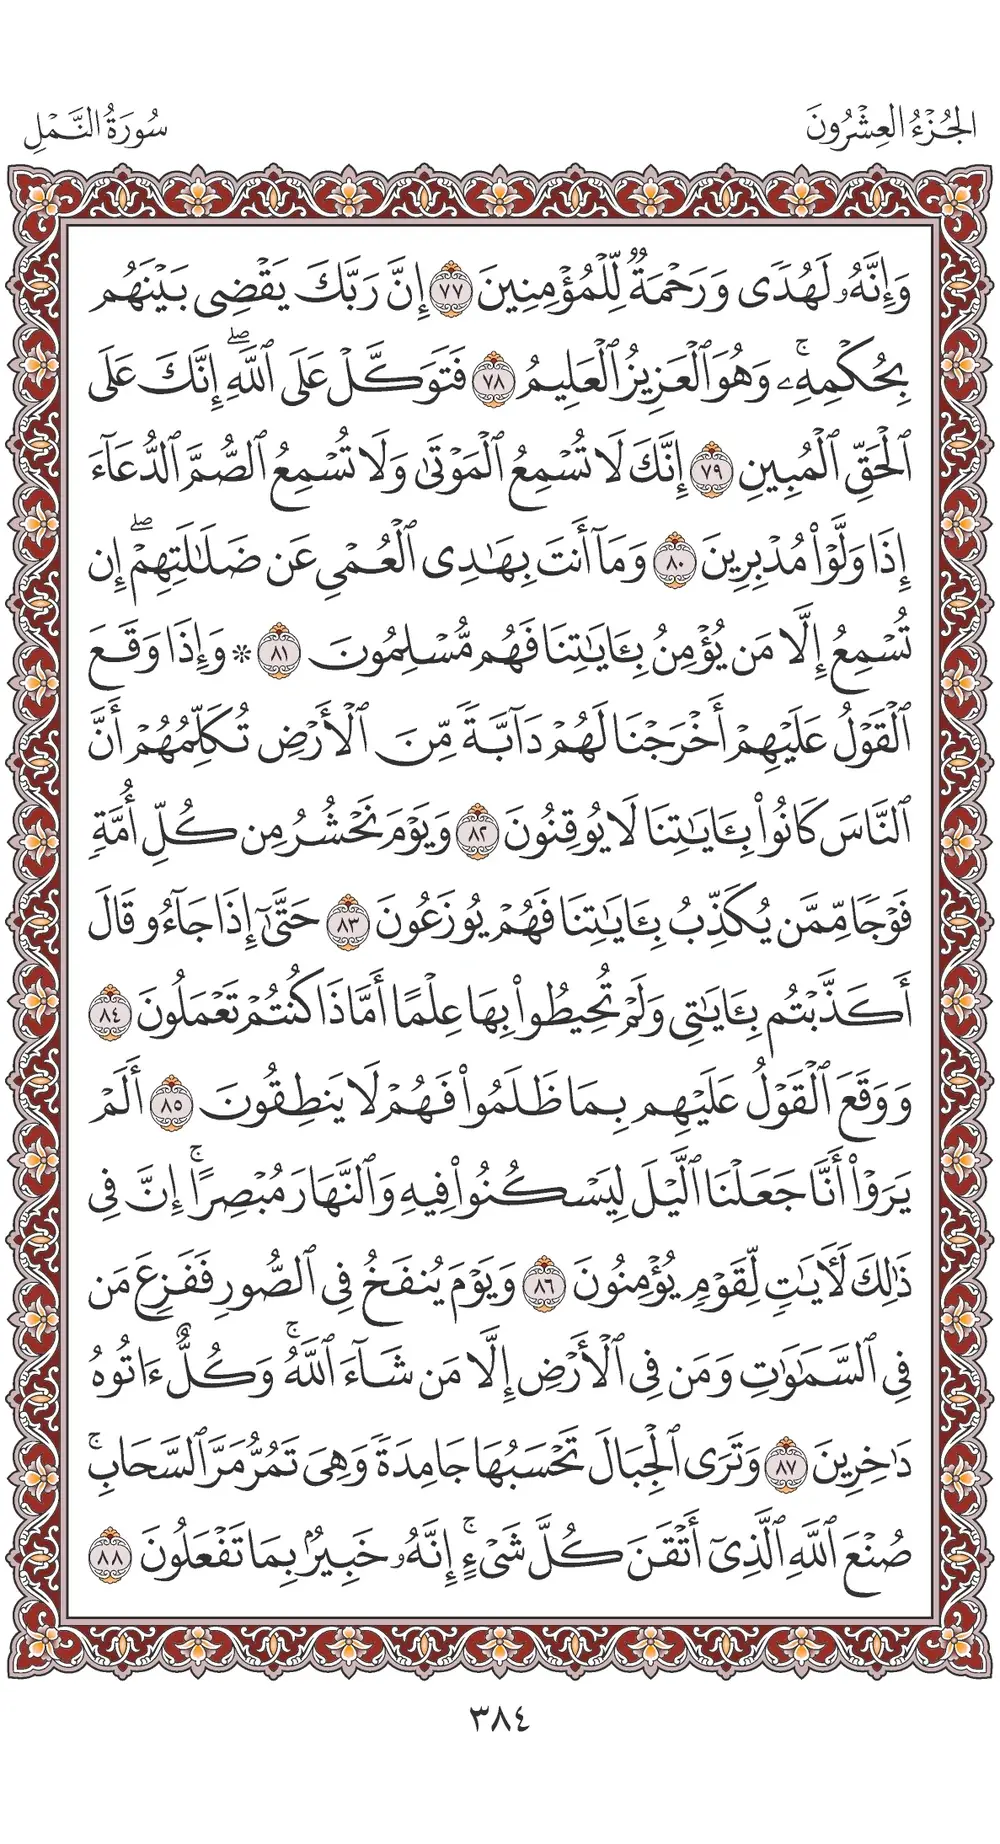 الجُزْءُ العِشْرُونَ
سُورَةُ النَّمْلِ
وَإِنَّهُۥ لَهُدًى وَرَحْمَةٌ لِّلْمُؤْمِنِينَ ٧٧ إِنَّ رَبَّكَ يَقْضِى بَيْنَهُم
بِحُكْمِهِۦۚ وَهُوَ ٱلْعَزِيزُ ٱلْعَلِيمُ ٧٨ فَتَوَكَّلْ عَلَى ٱللَّهِۖ إِنَّكَ عَلَى
ٱلْحَقِّ ٱلْمُبِينِ ٧٩ إِنَّكَ لَا تُسْمِعُ ٱلْمَوْتَىٰ وَلَا تُسْمِعُ ٱلصُّمَّ ٱلدُّعَآءَ
إِذَا وَلَّوْا۟ مُدْبِرِينَ ٨٠ وَمَآ أَنتَ بِهَـٰدِى ٱلْعُمْىِ عَن ضَلَـٰلَتِهِمْۖ إِن
تُسْمِعُ إِلَّا مَن يُؤْمِنُ بِـَٔايَـٰتِنَا فَهُم مُّسْلِمُونَ ٨١ * وَإِذَا وَقَعَ
ٱلْقَوْلُ عَلَيْهِمْ أَخْرَجْنَا لَهُمْ دَآبَّةً مِّنَ ٱلْأَرْضِ تُكَلِّمُهُمْ أَنَّ
ٱلنَّاسَ كَانُوا۟ بِـَٔايَـٰتِنَا لَا يُوقِنُونَ ٨٢ وَيَوْمَ نَحْشُرُ مِن كُلِّ أُمَّةٍ
فَوْجًا مِّمَّن يُكَذِّبُ بِـَٔايَـٰتِنَا فَهُمْ يُوزَعُونَ ٨٣ حَتَّىٰٓ إِذَا جَآءُو قَالَ
أَكَذَّبْتُم بِـَٔايَـٰتِى وَلَمْ تُحِيطُوا۟ بِهَا عِلْمًا أَمَّاذَا كُنتُمْ تَعْمَلُونَ ٨٤
وَوَقَعَ ٱلْقَوْلُ عَلَيْهِم بِمَا ظَلَمُوا۟ فَهُمْ لَا يَنطِقُونَ ٨٥ أَلَمْ
يَرَوْا۟ أَنَّا جَعَلْنَا ٱلَّيْلَ لِيَسْكُنُوا۟ فِيهِ وَٱلنَّهَارَ مُبْصِرًاۚ إِنَّ فِى
ذَٰلِكَ لَـَٔايَـٰتٍ لِّقَوْمٍ يُؤْمِنُونَ ٨٦ وَيَوْمَ يُنفَخُ فِى ٱلصُّورِ فَفَزِعَ مَن
فِى ٱلسَّمَـٰوَٰتِ وَمَن فِى ٱلْأَرْضِ إِلَّا مَن شَآءَ ٱللَّهُۚ وَكُلٌّ ءَاتُوهُ
دَٰخِرِينَ ٨٧ وَتَرَى ٱلْجِبَالَ تَحْسَبُهَا جَامِدَةً وَهِىَ تَمُرُّ مَرَّ ٱلسَّحَابِۚ
صُنْعَ ٱللَّهِ ٱلَّذِىٓ أَتْقَنَ كُلَّ شَىْءٍۚ إِنَّهُۥ خَبِيرٌۢ بِمَا تَفْعَلُونَ ٨٨
٣٨٤